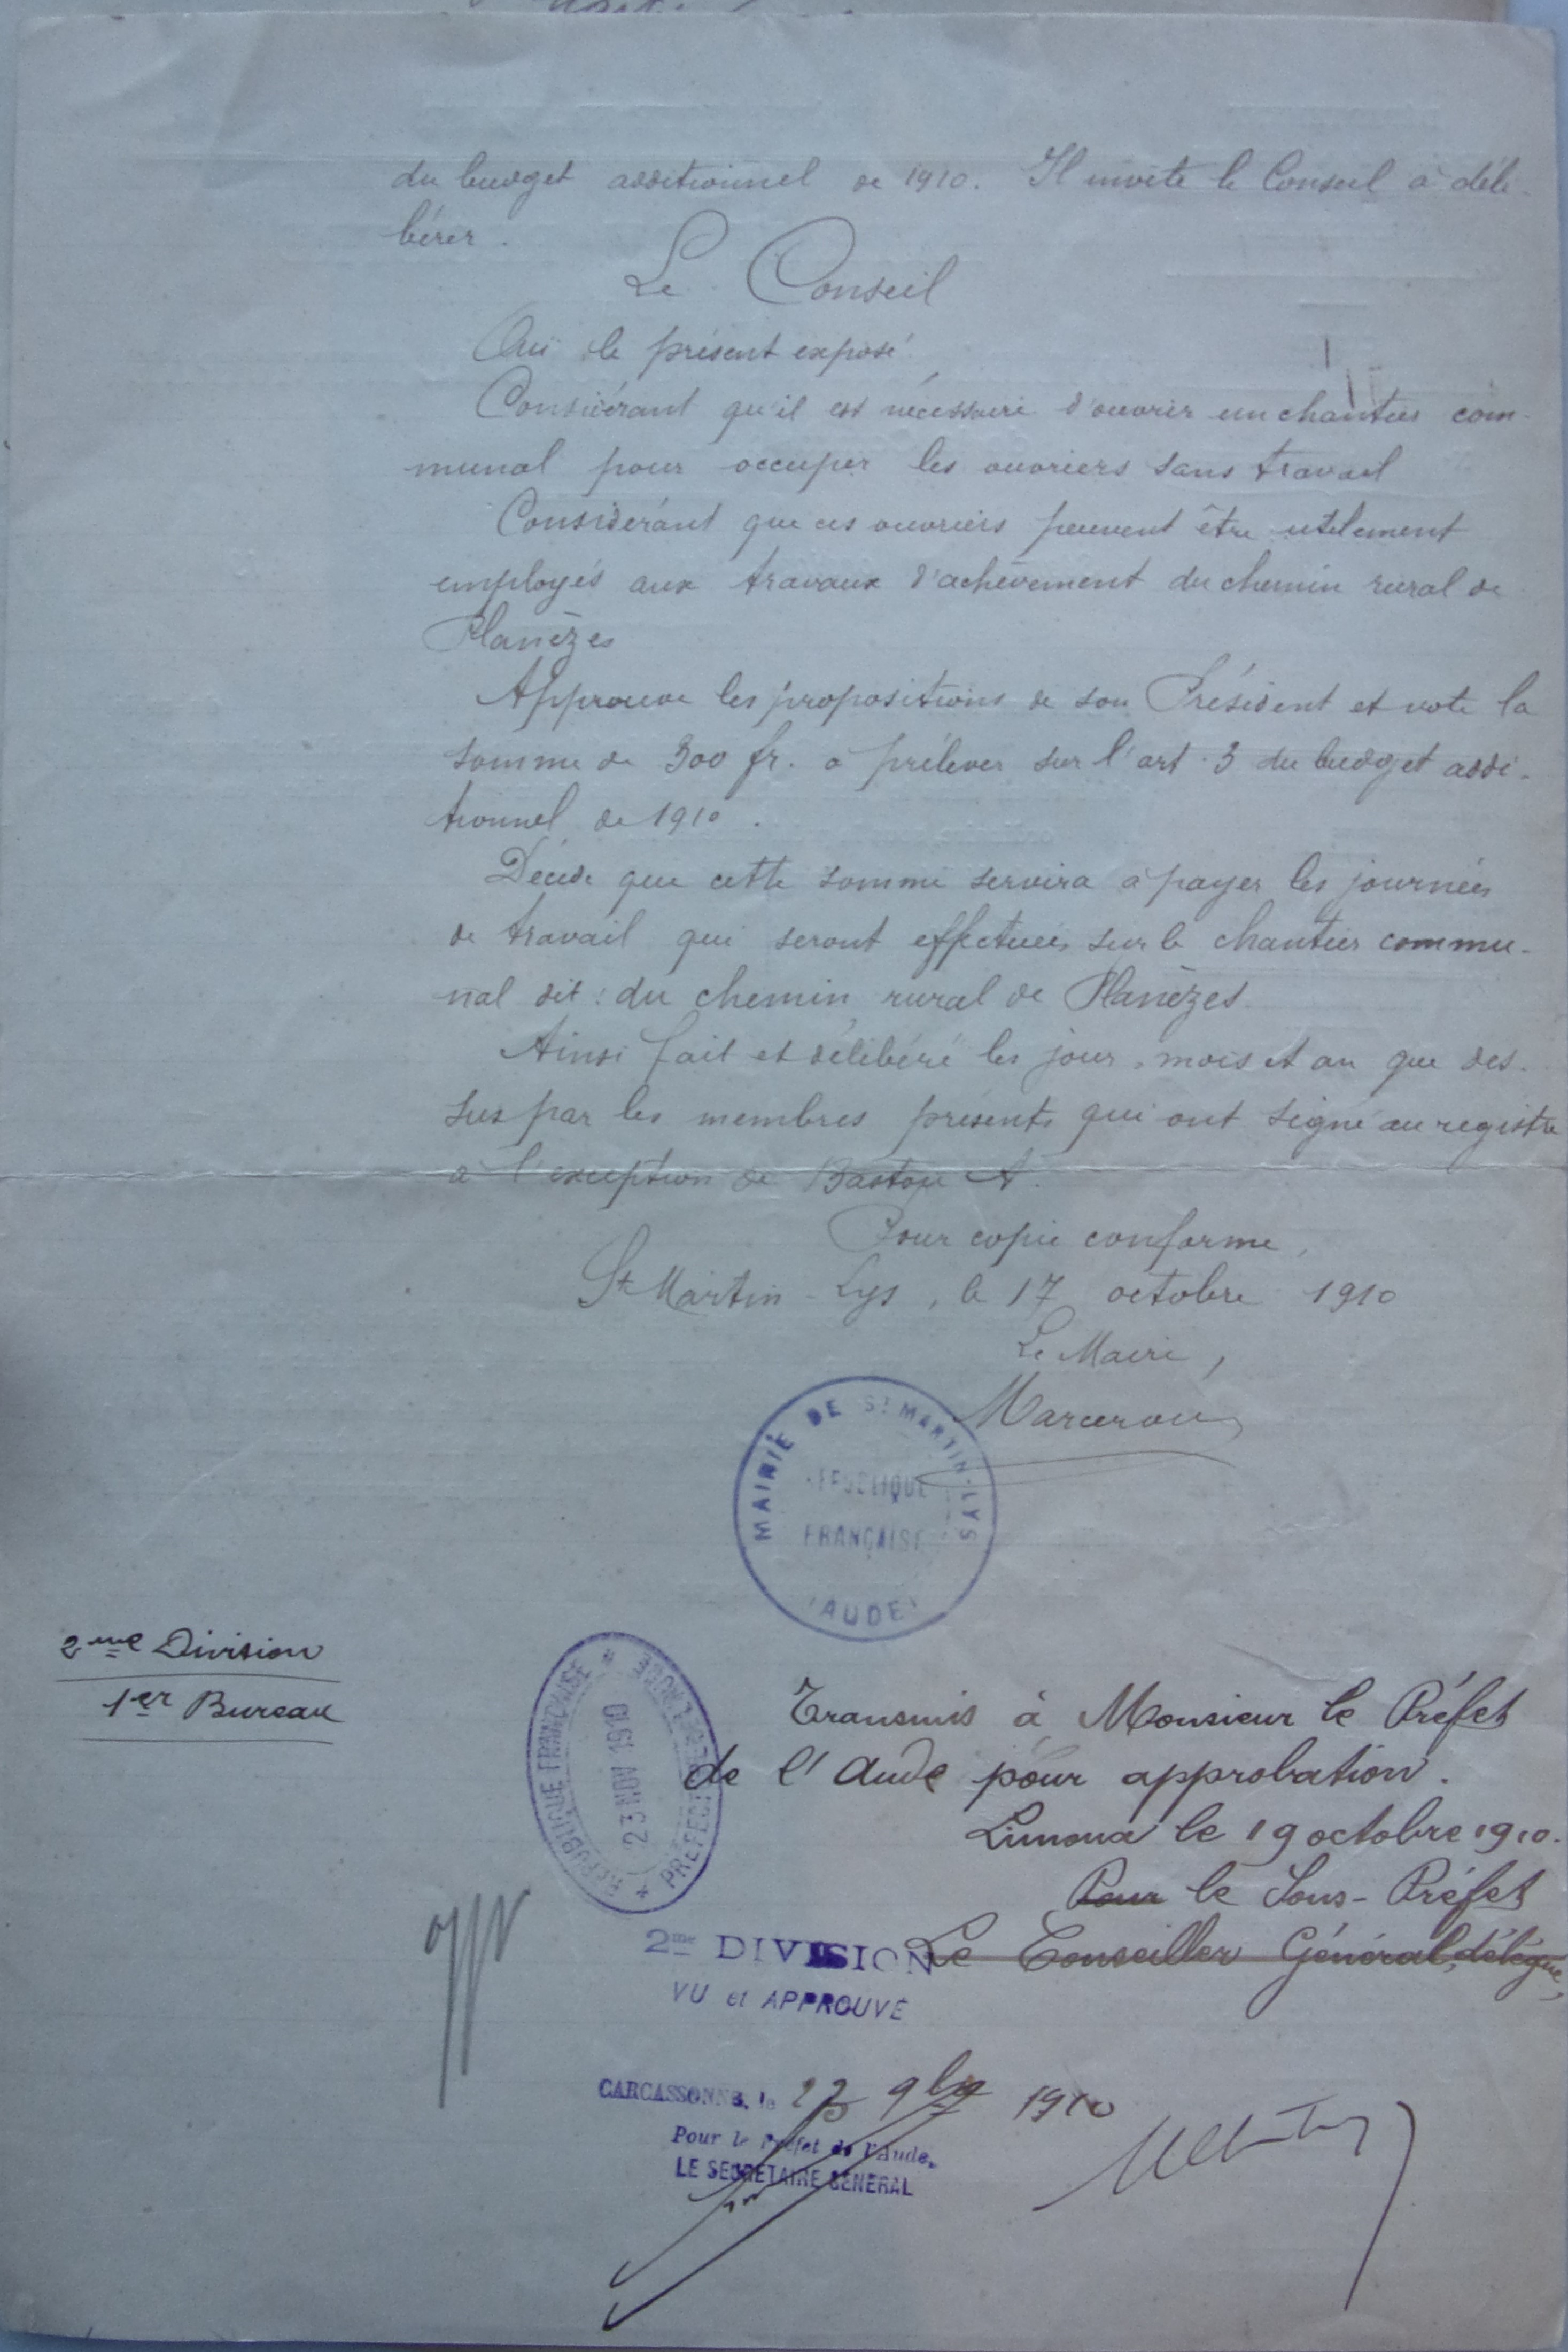 du budget additionnel de 1910. Il invite le Conseil à déli-
bérer.
Le Conseil
Oui le présent exposé
Considérant qu'il est nécessaire d'ouvrir un chantier com-
munal pour occuper les ouvriers sans travail
Considérant que ces ouvriers peuvent être utilement
employés aux travaux d'achèvement du chemin rural de
Planèzes
Approuve les propositions de son Président et vote la
somme de 300 fr. à prélever sur l'art. 3 du budget addi-
tionnel de 1910.
Décide que cette somme servira à payer les journées
de travail qui seront effectuées sur le chantier commu-
nal dit : du chemin rural de Planèzes.
Ainsi fait et délibéré les jour, mois et an que des-
sus par les membres présents qui ont signé au registre
à l'exception de Bastou A.
Pour copie conforme,
St Martin-Lys, le 17 octobre 1910
Le Maire,
Marcerou
MAIRIE DE St MARTIN-LYS
REPUBLIQUE
FRANÇAISE
AUDE
2me Division
1er Bureau
REPUBLIQUE FRANÇAISE
PREFECTURE DE L'AUDE
23 NOV 1910
Transmis à Monsieur le Préfet
de l'Aude pour approbation.
Limoux le 19 octobre 1910.
Pour le Sous-Préfet
Le Conseiller Général, délégué,
2me DIVISION
VU et APPROUVÉ
CARCASSONNE, le 23 9bre 1910
Pour le Préfet de l'Aude,
LE SECRETAIRE GENERAL